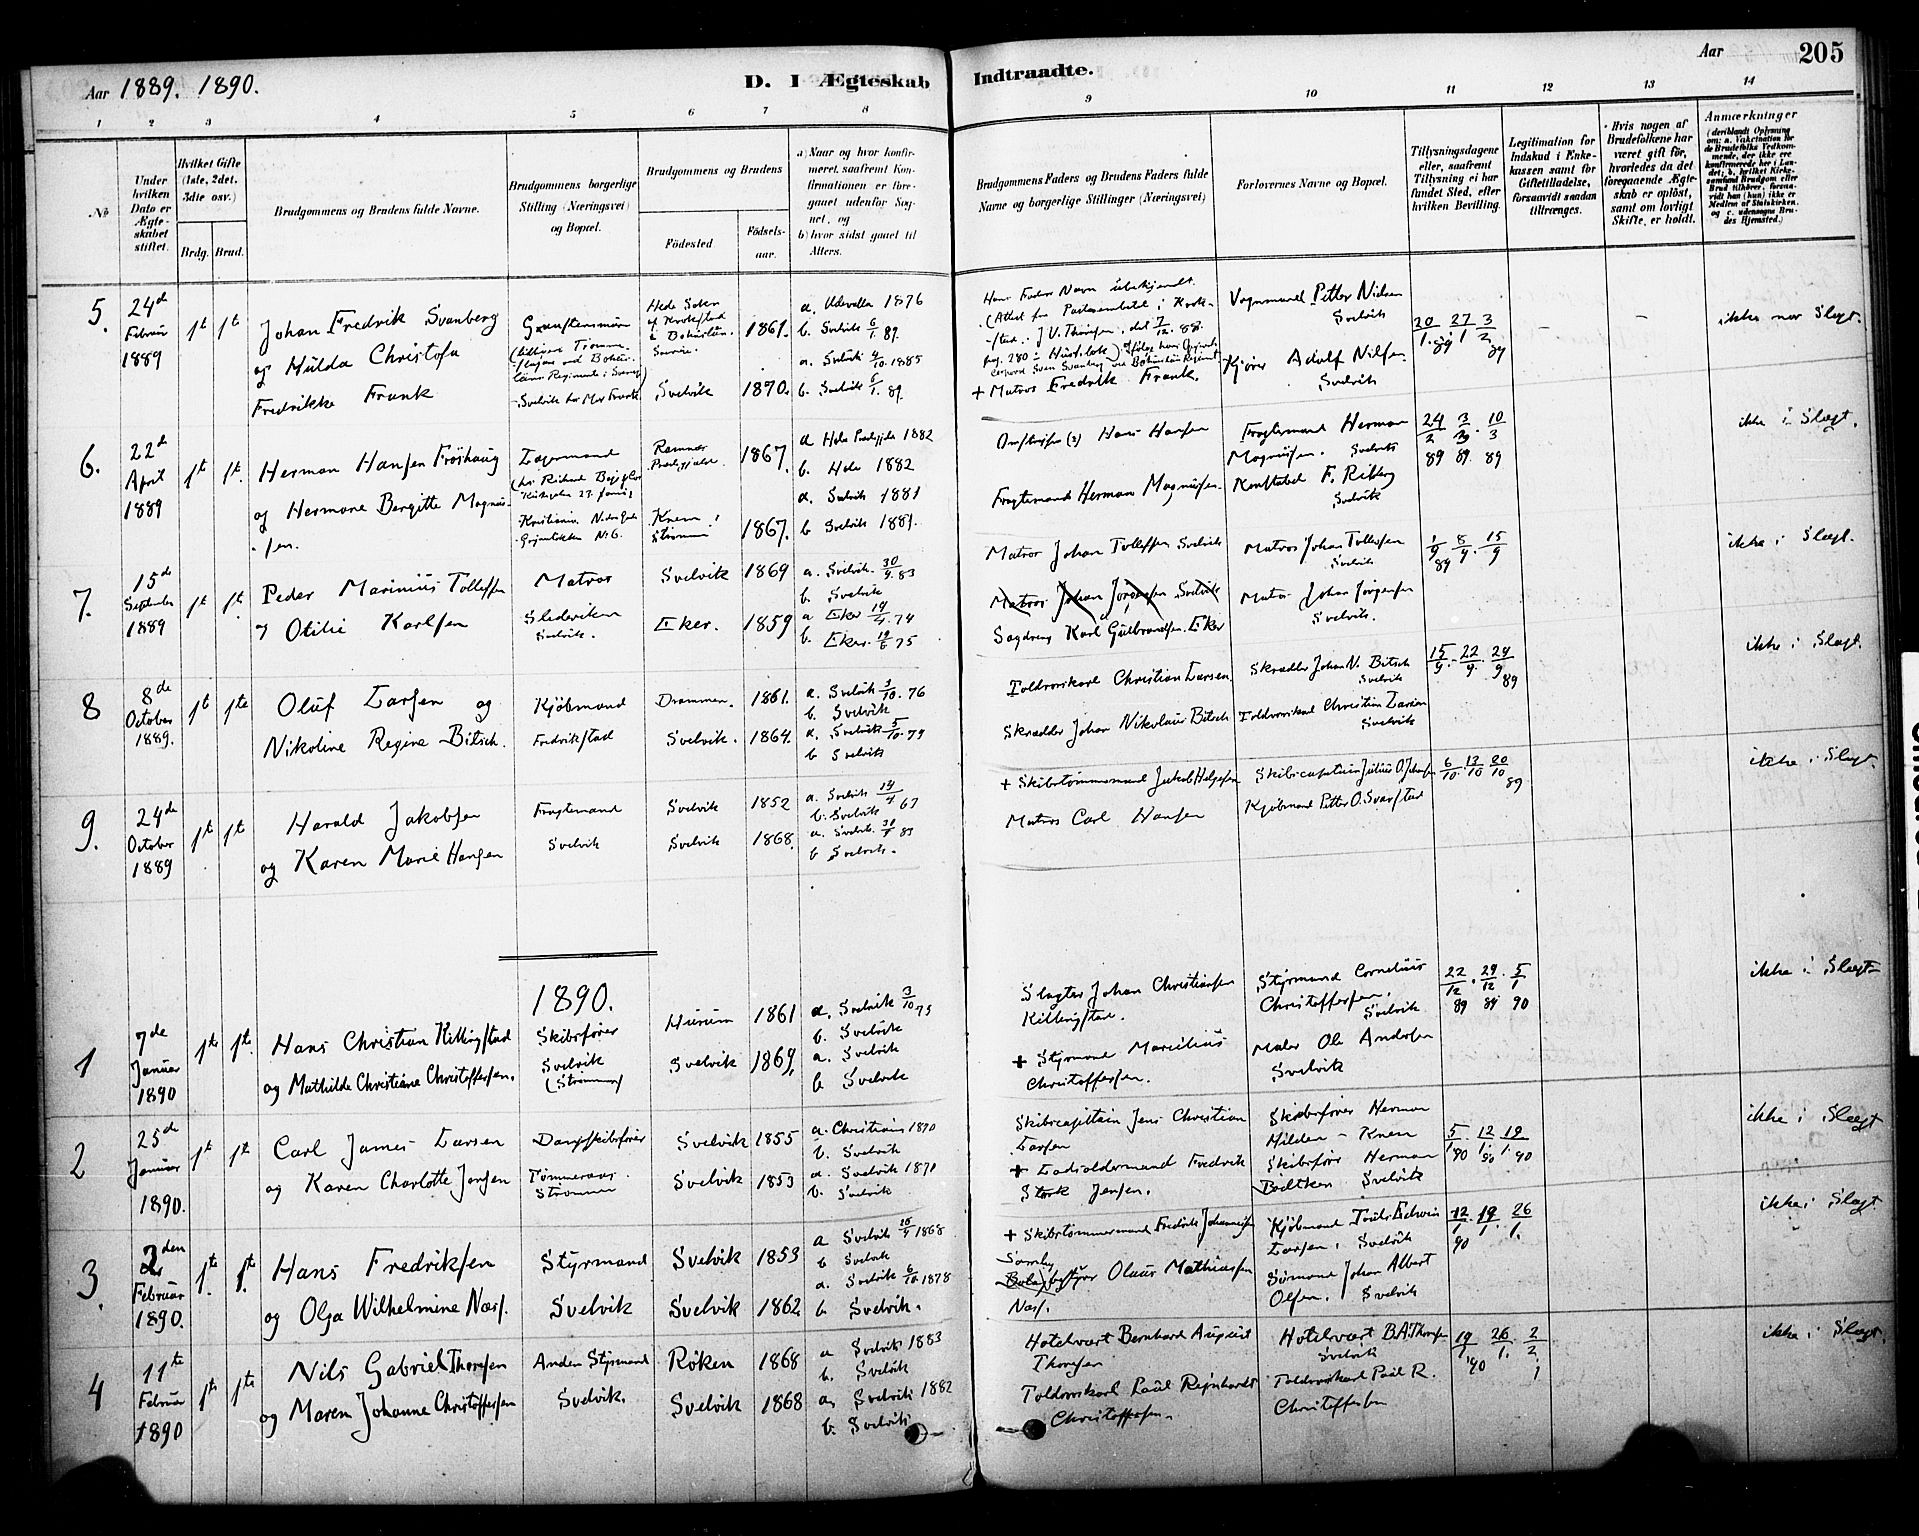 Aar 1889. 1890.
D. I Ægteskab Indtraadte.
Aar 205
1 2 3 4 5 6 7 8 9 10 11 12 13 14
No
Under hvilken Dato er Ægteskabet stiftet.
Hvilket Gifte (1ste, 2det, 3die osv.)
Brdg. Brud.
Brudgommens og Brudens fulde Navne.
Brudgommens borgerlige Stilling (Næringsvei) og Bopæl.
Brudgommens og Brudens
Födested.
Födselsaar.
a) Naar og hvor konfirmeret, saafremt Konfirmationen er foregaaet udenfor Sognet, og
b) hvor sidst gaaet til Alters.
Brudgommens Faders og Brudens Faders fulde Navne og borgerlige Stillinger (Næringsvei)
Forlovernes Navne og Bopæl.
Tillysningsdagene eller, saafremt Tillysning ei har fundet Sted, efter hvilken Bevilling.
Legitimation for Indskud i Enkekassen samt for Giftetilladelse, forsaavidt saadan tiltrænges.
Hvis nogen af Brudefolkene har været gift för, hvorledes da det foregaaende Ægteskab er oplöst, samt om lovligt Skifte, er holdt.
Anmærkninger
5. 24de Februar 1889 1ste 1ste
Johan Fredrik Svanberg
og Hulda Christofa
Fredrikke Frank
Svelvik 1861. 1870.
a. Udevalla 1876
b. Svelvik 6/1 89.
a. Svelvik 4/10 1885
b. Svelvik 6/1 89.
+ Matros Fredrik Frank.
Vognmand Petter Nielsen
Svelvik
Kjører Adolf Nilsen
Svelvik
20/1 89 27/1 3/2 89
– –
ikke nær Slægt.
6. 22de April 1889 1ste 1ste
Herman Hansen Fröshaug
og Hermane Bergitte Magnus-
sen.
1867. 1867.
a Hole Prstgjeld 1882
b. Hole 1882
a. Svelvik 1881
b Svelvik 1889.
Hans Hansen
Fragtemand Herman Magnussen.
Fragtemand Herman
Magnussen. Svelvik
Konstabel F. Riberg
Svelvik
24/2 89 3/3 89. 10/3 89
ikke i Slægt.
7. 15de September 1889 1ste 1ste
Peder Marinius Tollefsen
og Otilie Karlsen
Matros
Svelvik.
Svelvik 1869
Eker. 1859
a. Svelvik. 30/9 83
b. Svelvik
a Eker 19/4 74
b. Eker. 19/6 75
Matros Johan Tollefsen Svelvik
Matros Johan Jörgensen Svelvik
Sagdreng Karl Gulbrandsen. Eker
Matros Johan Tollefsen
Svelvik
Matros Johan Jörgensen
Svelvik.
1/9 89 8/9 15/9
ikke i Slægt.
8 8de October 1889. 1ste 1ste
Oluf Larsen og
Nikoline Regine Bitsch.
Kjöbmand
Fredrikstad
Drammen. 1861.
Svelvik. 1864.
a. Svelvik 1/10. 76
b. Svelvik
a. Svelvik 5/10. 79
b Svelvik
Toldrorskarl Christian Larsen
Skrædder Johan Nikolaus Bitsch
Skrædder Johan N. Bitsch
Svelvik
Toldrorskarl Christian Larsen
Svelvik
15/9. 22/9. 29/9 89
ikke i Slægt.
9. 24de October 1889 1ste 1ste
Harald Jakobsen
og Karen Marie Hansen
Fragtemand
Svelvik
Svelvik 1852
Svelvik 1868.
a. Svelvik 14/4 67
b. Svelvik
a. Svelvik. 30/9 83
b Svelvik.
+ Skibstømmermand Jakob Helgesen
Matros Carl Hansen
Skibscapitain Julius O. Johnsen
Kjöbmand Petter O. Svarstad
6/10. 13/10 20/10 89
ikke i Slægt.
1890.
1 7de Januar 1890 1ste 1ste
Hans Christian Killingstad
og Mathilde Christiane Christoffersen.
Skibsfører
Svelvik
(Strømmen)
Hurum 1861
Svelvik 1869.
a. Svelvik 3/10 75
b. Svelvik
a. Svelvik
b Svelvik
Slagter Johan Christiansen
Killingstad.
+ Styrmand Marcelius
Christoffersen.
Styrmand Cornelius
Christoffersen.
Svelvik
Maler Ole Andersen
Svelvik
22/12 89 29/12 89 5/1 90
ikke i Slægt
2 25de Januar 1890. 1ste 1ste
Carl James Larsen
og Karen Charlotte Jensen
Dampskibsfører
Tømmeraas.
Strømmen
Svelvik 1855
Svelvik 1853
a. Christiania 1870
b. Svelvik
a. Svelvik 1871
b. Svelvik
Skibscapitain Jens Christian
Larsen
+ Ladsoldermand Fredrik
Stork Jensen.
Skibsfører Herman
Hilden – Knem
Skibsfører Herman
Bødtken Svelvik
5/1 90 12/1 90 19/1 90
ikke i Slægt
3. 3den Februar 1890. 1ste 1ste
Hans Fredriksen
og Olga Wilhelmine Næss.
Styrmand
Svelvik
Svelvik 1853
Svelvik 1862
a Svelvik 1868
b Svelvik
a. Svelvik 6/10 1878
b Svelvik.
+ Skibstømmermand Fredrik Johannesen
Olaus Mathiassen
Næss.
Kjöbmand Edwin
Larsen. Svelvik
Sømand Johan Albert
Olsen. Svelvik
12/1 90 19/1. 26/1.
ikke i Slægt
4 11te Februar 1890 1ste 1ste
Nils Gabriel Thoresen
og Maren Johanne Christoffersen
Anden Styrmand
Svelvik.
Røken 1868
Svelvik 1868
a Svelvik 1883
b. Svelvik
a. Svelvik 1882
b. Svelvik
Hotelvært Bernhard August
Thoresen
Toldrorskarl Paul Reinhardt
Christoffersen.
Hotelvært B.A. Thoresen
Svelvik
Toldrorskarl Paul R.
Christoffersen
19/1 90 26/1. 2/2
ikke i Slægt.